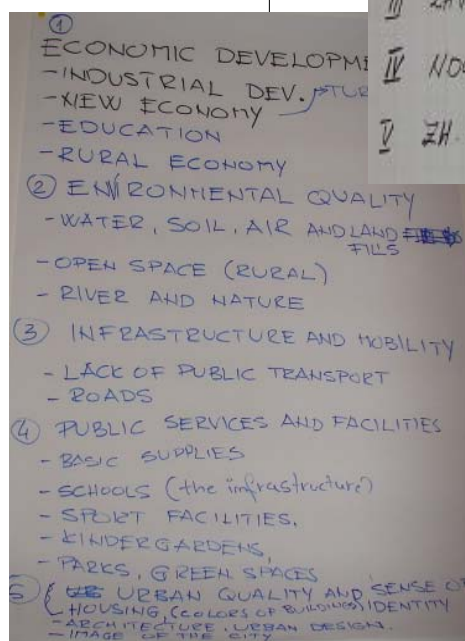 ①
ECONOMIC DEVELOPME
-INDUSTRIAL DEV.
-NEW ECONOMY
-EDUCATION
-RURAL ECONOMY
② ENVIRONMENTAL QUALITY
-WATER, SOIL, AIR AND LAND
FILLS
-OPEN SPACE (RURAL)
- RIVER AND NATURE
③ INFRASTRUCTURE AND MOBILITY
- LACK OF PUBLIC TRANSPORT
- ROADS
④ PUBLIC SERVICES AND FACILITIES
- BASIC SUPPLIES
- SCHOOLS (the infrastructure)
- SPORT FACILITIES,
- KINDERGARDENS,
- PARKS, GREEN SPACES
⑤ URBAN QUALITY AND SENSE OF
HOUSING, (COLORS OF BUILDINGS) IDENTITY
- ARCHITECTURE, URBAN DESIGN.
- IMAGE OF THE CITY
III
IV NO
V ZH.